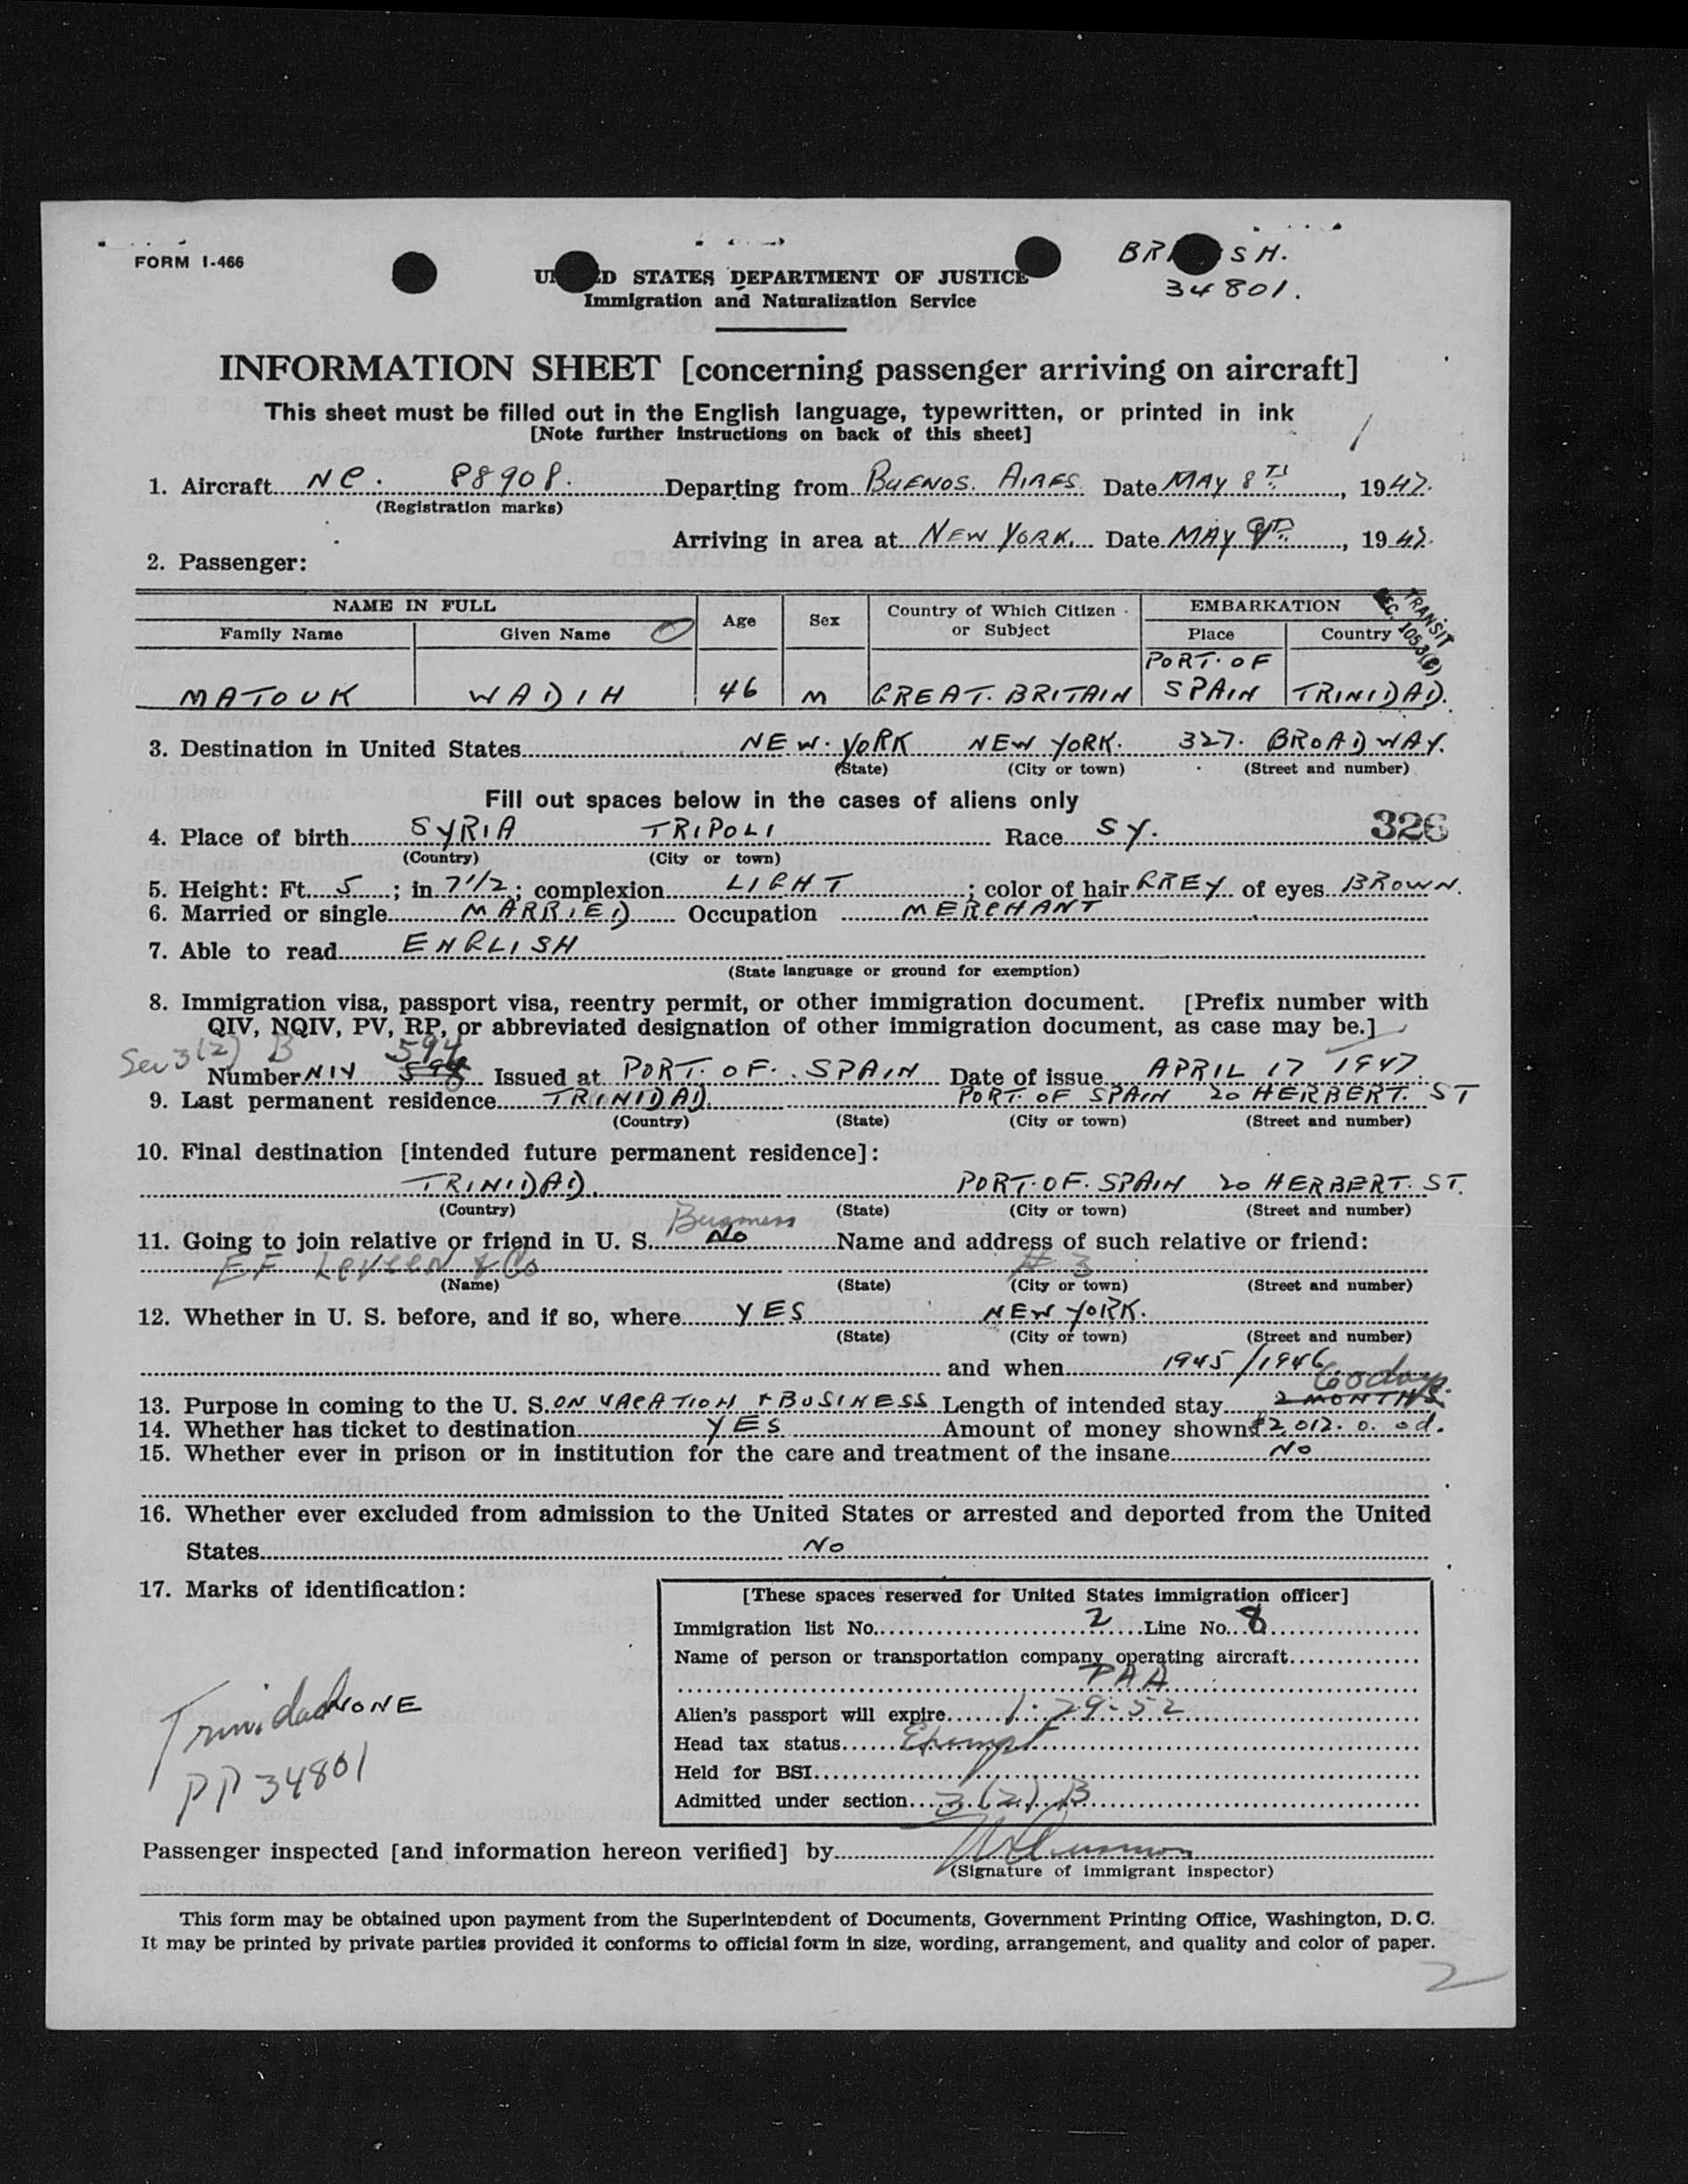 FORM I-466
BRI SH.
34801.
UN D STATES DEPARTMENT OF JUSTICE
Immigration and Naturalization Service
INFORMATION SHEET [concerning passenger arriving on aircraft]
This sheet must be filled out in the English language, typewritten, or printed in ink
[Note further instructions on back of this sheet]
1. Aircraft NC. 88908. Departing from BUENOS. AIRES. Date MAY 8TH, 1947.
(Registration marks)
Arriving in area at NEW YORK. Date MAY 9TH, 1947.
2. Passenger:
NAME IN FULL Age Sex Country of Which Citizen or Subject EMBARKATION
Family Name Given Name Place Country
TRANSIT
SEC. 1053(e)
MATOUK WADIH 46 M GREAT. BRITAIN PORT. OF SPAIN TRINIDAD.
3. Destination in United States NEW. YORK NEW YORK. 327. BROADWAY.
(State) (City or town) (Street and number)
Fill out spaces below in the cases of aliens only
326
4. Place of birth SYRIA TRIPOLI Race SY.
(Country) (City or town)
5. Height: Ft. 5; in 7 1/2; complexion LIGHT; color of hair GREY of eyes BROWN.
6. Married or single MARRIED Occupation MERCHANT
7. Able to read ENGLISH
(State language or ground for exemption)
8. Immigration visa, passport visa, reentry permit, or other immigration document. [Prefix number with
QIV, NQIV, PV, RP, or abbreviated designation of other immigration document, as case may be.]
Sec 3(2) B 594
Number NIV 598 Issued at PORT. OF. SPAIN Date of issue APRIL 17 1947.
9. Last permanent residence TRINIDAD. PORT. OF SPAIN 20 HERBERT. ST
(Country) (State) (City or town) (Street and number)
10. Final destination [intended future permanent residence]:
TRINIDAD. PORT. OF. SPAIN 20 HERBERT. ST.
(Country) (State) (City or town) (Street and number)
Business
11. Going to join relative or friend in U. S. No Name and address of such relative or friend:
EF Leveen & Co # 3
(Name) (State) (City or town) (Street and number)
12. Whether in U. S. before, and if so, where YES NEW YORK.
(State) (City or town) (Street and number)
and when 1945/1946
60 days
13. Purpose in coming to the U. S. ON VACATION + BUSINESS Length of intended stay 2 MONTHS.
14. Whether has ticket to destination YES Amount of money shown $2012. 0. od.
15. Whether ever in prison or in institution for the care and treatment of the insane No
16. Whether ever excluded from admission to the United States or arrested and deported from the United
States No
17. Marks of identification:
NONE
Trinidad
PP 34801
[These spaces reserved for United States immigration officer]
Immigration list No. 2 Line No. 8
Name of person or transportation company operating aircraft
PAA
Alien's passport will expire 1-29-52
Head tax status Exempt
Held for BSI
Admitted under section 3 (2) B
Passenger inspected [and information hereon verified] by
(Signature of immigrant inspector)
This form may be obtained upon payment from the Superintendent of Documents, Government Printing Office, Washington, D. C.
It may be printed by private parties provided it conforms to official form in size, wording, arrangement, and quality and color of paper.
2